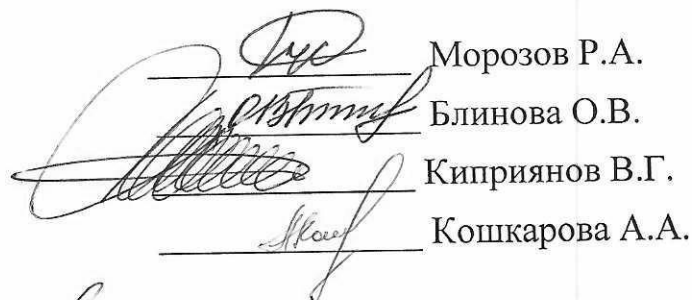 Морозов Р.А.
Блинова О.В.
Киприянов В.Г.
Кошкарова А.А.